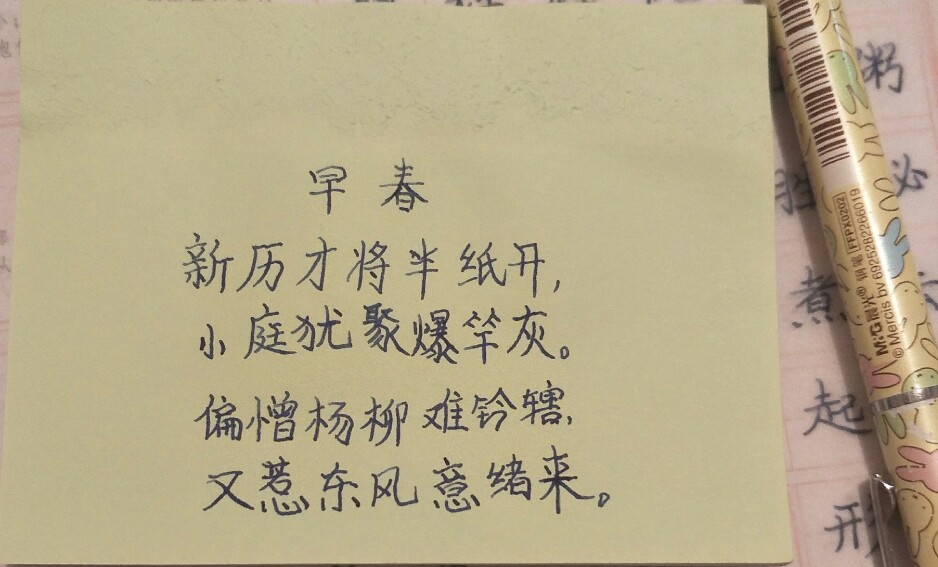 早春
新历才将半纸开,
小庭犹聚爆竿灰。
偏憎杨柳难钤辖,
又惹东风意绪来。
粥
必
煮
起
形
M&G晨光® 钢笔 FFPX0202
© Mercis bv 6925282266019